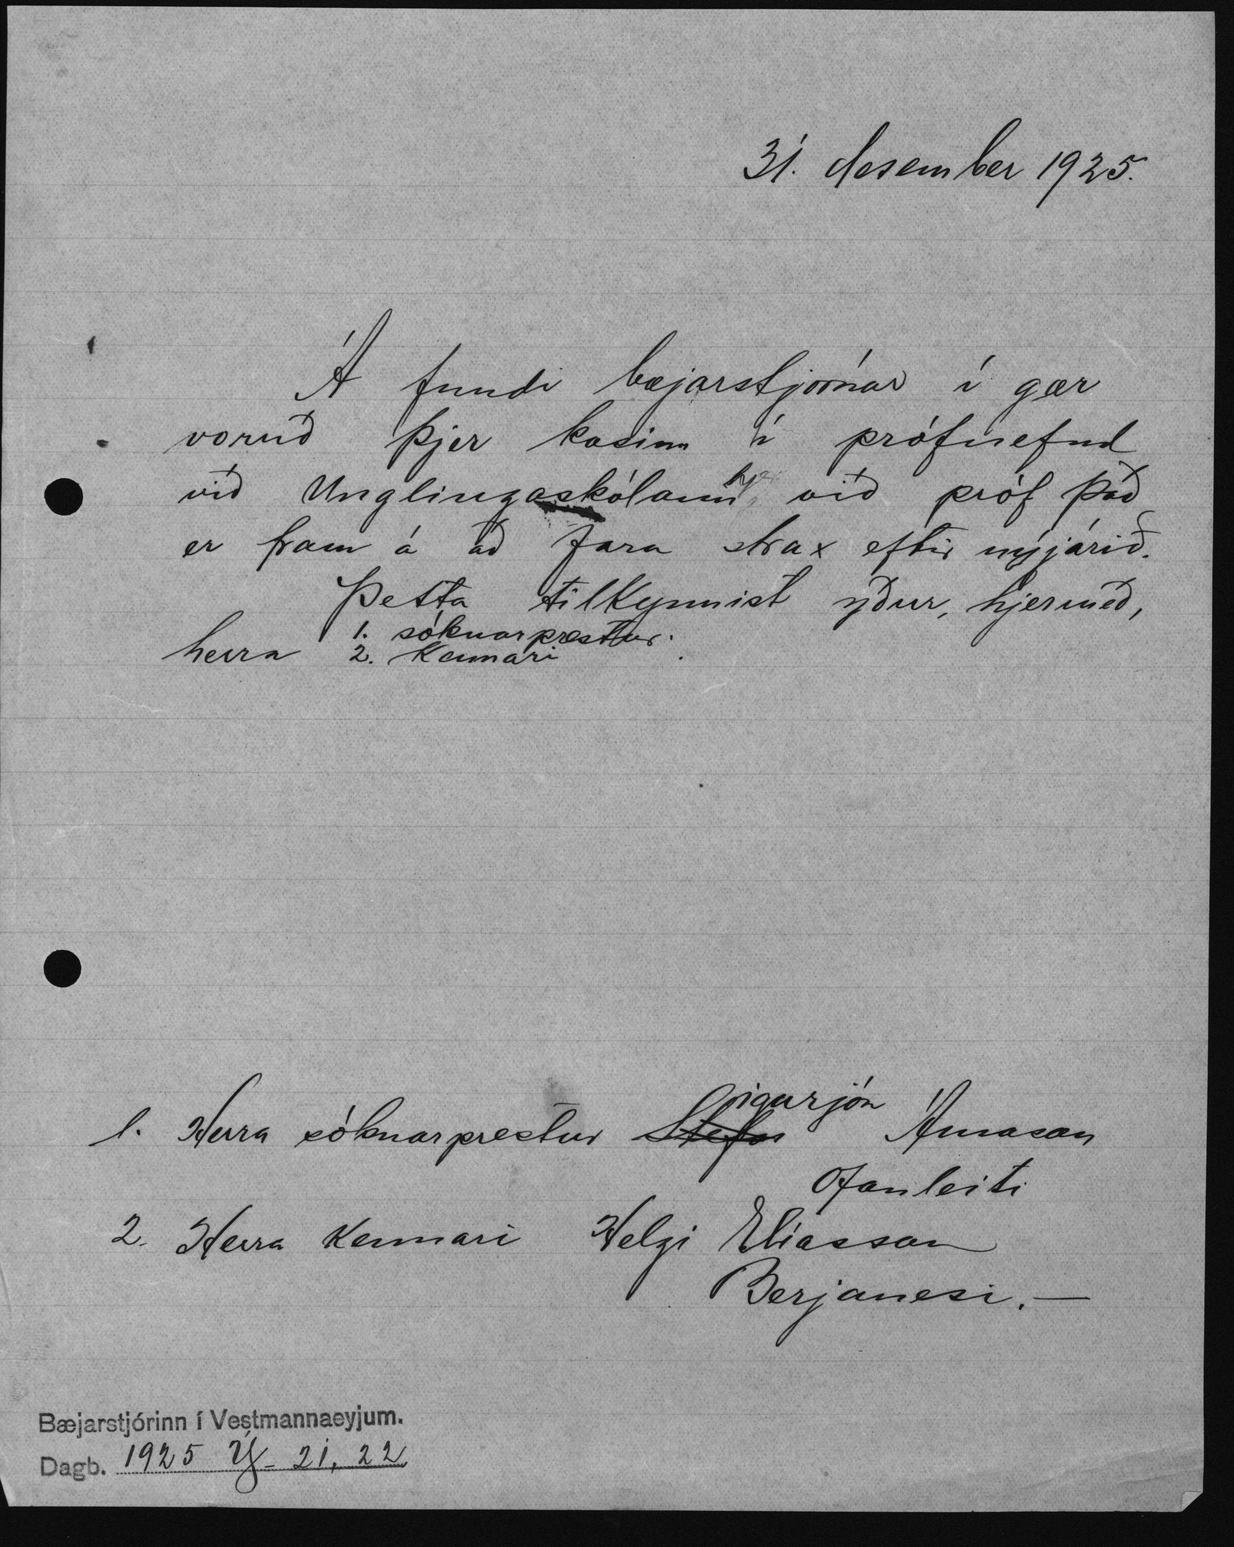 31. desember 1925.
Á fundi bæjarstjórnar í gær
voruð þjer kosinn í prófnefnd
við Unglingaskólann við próf það
er fram á að fara strax eftir nýjárið.
Þetta tilkynnist yður, hjermeð,
herra 1. sóknarprestur.
2. Kennari
1. Herra sóknarprestur Sigurjón Árnason
Ofanleiti
2. Herra Kennari Helgi Elíasson
Berjanesi.—
Bæjarstjórinn í Vestmannaeyjum.
Dagb. 1925 21, 22